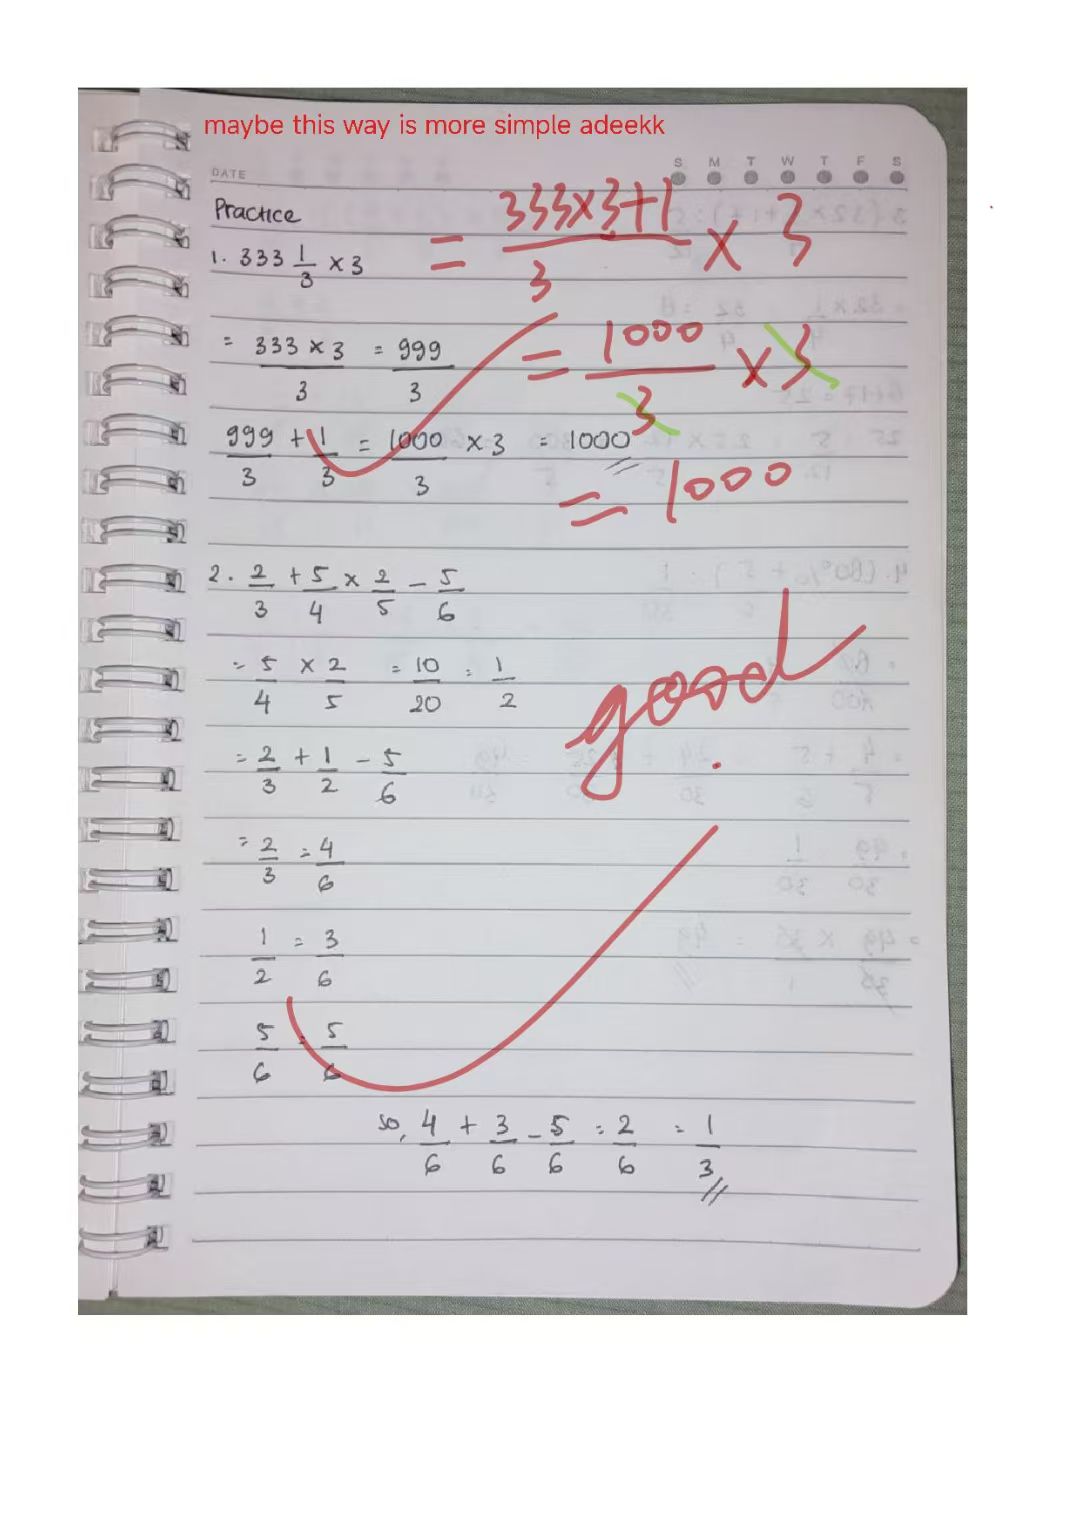 maybe this way is more simple adeekk
DATE
S M T W T F S
Practice
1. 333 1/3 × 3
= (333×3+1)/3 × 3
= (333 × 3)/3 = 999/3
= 1000/3 × 3
999/3 + 1/3 = 1000/3 × 3 = 1000
= 1000
2. 2/3 + 5/4 × 2/5 - 5/6
= 5/4 × 2/5 = 10/20 = 1/2
good
= 2/3 + 1/2 - 5/6
= 2/3 = 4/6
1/2 = 3/6
5/6 = 5/6
so, 4/6 + 3/6 - 5/6 = 2/6 = 1/3